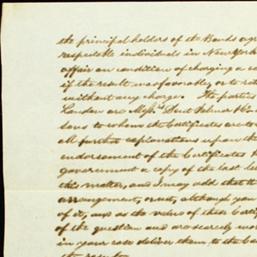 the principal holders of the Bonds agr
respectable individuals in New York
affair on condition of charging a co
if the result was favorable, or to ret
without any charges. The parties
London are Mess.rs Dent Palmer &
sons to whom the Certificates are to
all further explanations upon the
endorsement of the Certificates
government a copy of the last let
this matter, and I may add that th
arrangement, or not, although you
of it, and as the value of these Certif
of the question and are scarcely wor
in your case deliver them, to the Ca
the